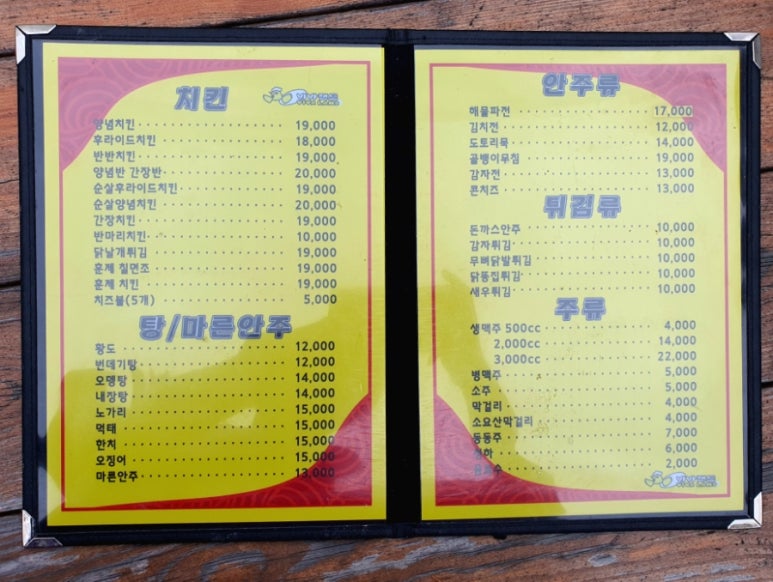 치킨
양념치킨 19,000
후라이드치킨 18,000
반반치킨 19,000
양념반 간장반 20,000
순살후라이드치킨 19,000
순살양념치킨 20,000
간장치킨 19,000
반마리치킨 10,000
닭날개튀김 19,000
훈제 칠면조 19,000
훈제 치킨 19,000
치즈볼(5개) 5,000
탕/마른안주
황도 12,000
번데기탕 12,000
오뎅탕 14,000
내장탕 14,000
노가리 15,000
먹태 15,000
한치 15,000
오징어 15,000
마른안주 13,000
안주류
해물파전 17,000
김치전 12,000
도토리묵 14,000
골뱅이무침 19,000
감자전 13,000
콘치즈 13,000
튀김류
돈까스안주 10,000
감자튀김 10,000
무뼈닭발튀김 10,000
닭똥집튀김 10,000
새우튀김 10,000
주류
생맥주 500cc 4,000
2,000cc 14,000
3,000cc 22,000
병맥주 5,000
소주 5,000
막걸리 4,000
소요산막걸리 4,000
동동주 7,000
6,000
2,000